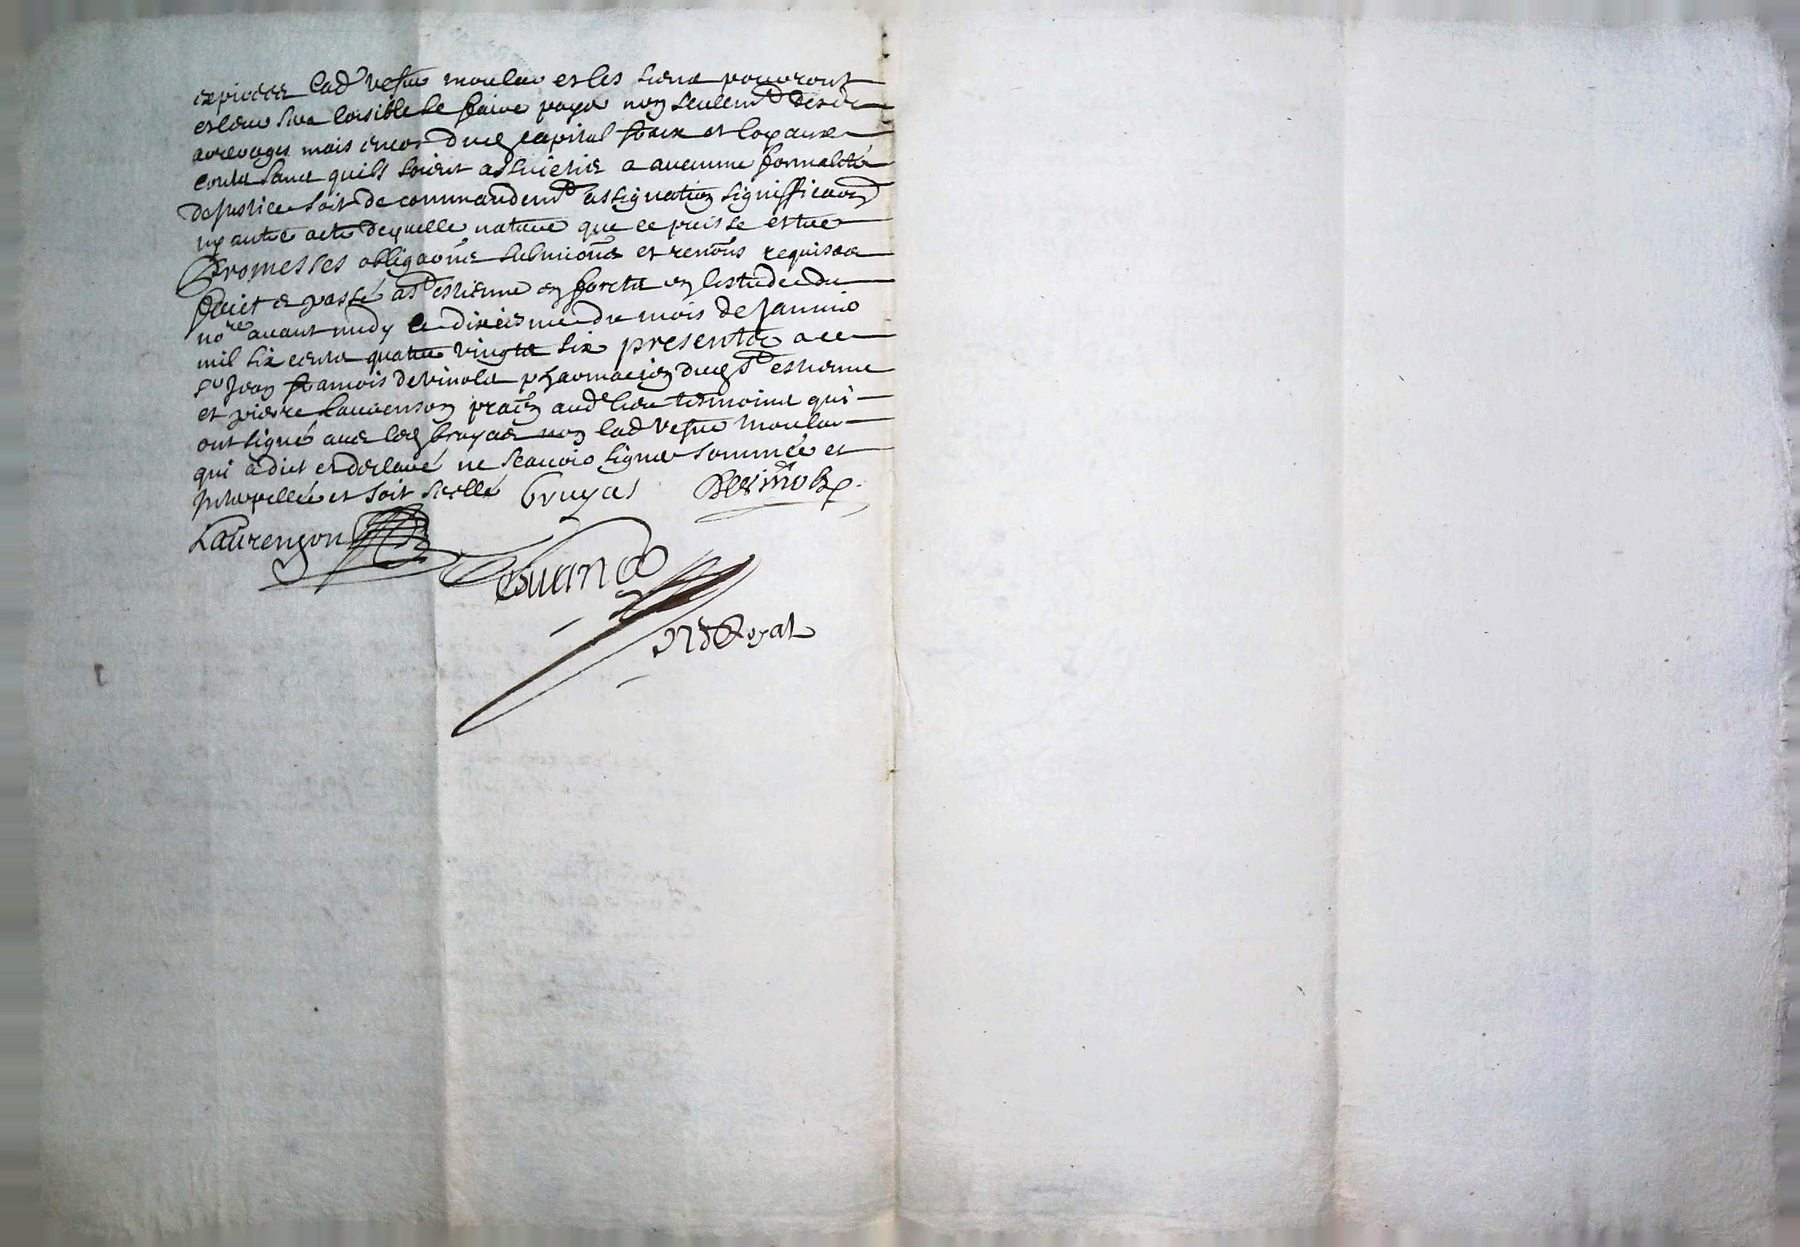 expirées lad vesue moulin et les siens pourront
et leur sera loisible se faire payer non seulemt desd
arrerages mais encor dud capital fraix et loyaux
couts sans quils soient assuietis a aucunne formalité
de justice soit de commandemt assignation signifficaon
ny autre acte de quelle nature que ce puisse estre
Promesses obligaons submions et renons requises
faict et passé a st estienne en foretz en lestude du
nore auant midy le dixiesme du mois de januier
mil six cents quatre vingts six presents a ce
sr Jean francois devinols pharmacien dud st estienne
et pierre Laurenson praen aud lieu tesmoins qui
ont signé auec led bruyas non lad vesue moulin
qui a dict et declaré ne scauoir signer sommée et
Interpellée et soit scellé bruyas
Laurenson